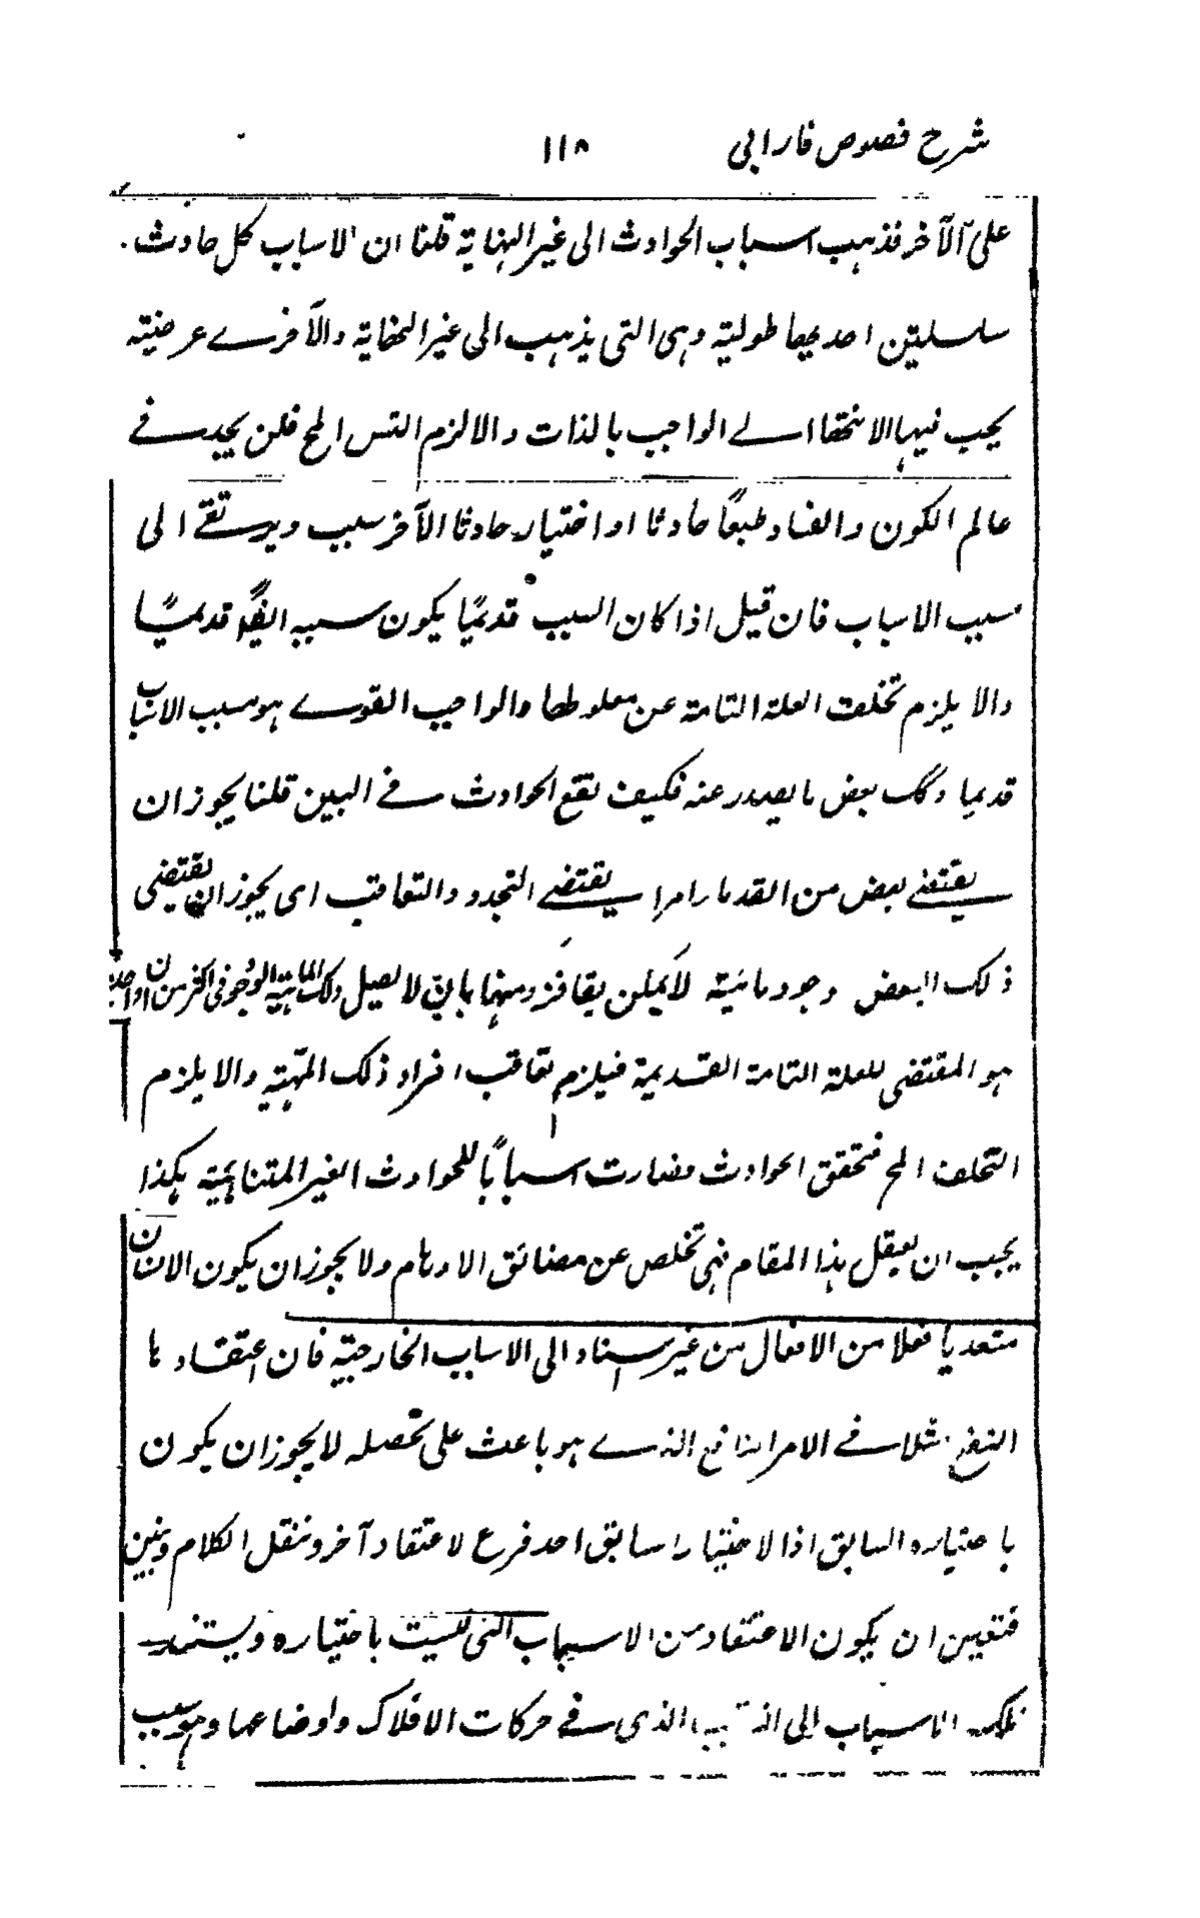 شرح فصوص فارابی ١١٨
علی الآخر فذہب اسباب الحوادث الی غیر النہایة قلنا ان لاسباب کل حادث
سلسلتین احدیھا طولیة وہی التی یذہب الی غیر النھایة والآخرے عرضیتہ
یجب فیہا الانتھا الے الواجب بالذات والا لزم التس المح فلن یجد فے
عالم الکون والفساد طبعًا حادثا او اختیار حادثا الآخر سبب ویرتقے الی
سبب الاسباب فان قیل اذا کان السبب قدیمًا یکون سببہ ایضًا قدیمیًا
والا یلزم تخلف العلة التامة عن معلولھا والواجب القوے ہو سبب الاسباب
قدیما وکک بعض ما یصدر عنہ فکیف یقع الحوادث فے البین قلنا یجوز ان
یقتضے بعض من القدما امرا یقتضے التجدد والتعاقب ای یجوز ان یقتضی
ذلک البعض وجود مائیتہ لا یمکن بقا فرد منہا بان لا یصل ذلک المائیة الوجود فی اکثر من ان واحد
ہو المقتضی للعلة التامة القدیمة فیلزم تعاقب افراد ذلک المہیتہ والا یلزم
التخلف المح فتحقق الحوادث فصارت اسبابًا للحوادث الغیر المتناہیة ہکذا
یجب ان یعقل ہذا المقام فہی تخلص عن مضائق الاوہام ولا یجوز ان یکون الانسان
متعدیًا فعلا من الافعال من غیر اسناد الی الاسباب الخارجیة فان اعتقاد ہا
النفع مثلا فے الامر النافع الذے ہو باعث علی تحصلہ لا یجوز ان یکون
باختیارہ السابق اذا لاختیار سابق احد فرع لاعتقاد آخر وننقل الکلام
فتعین ان یکون الاعتقاد من الاسباب التی لیست باختیارہ ویستند
تلک الاسباب الی الذی فے حرکات الافلاک واوضاعہا وہو سبب